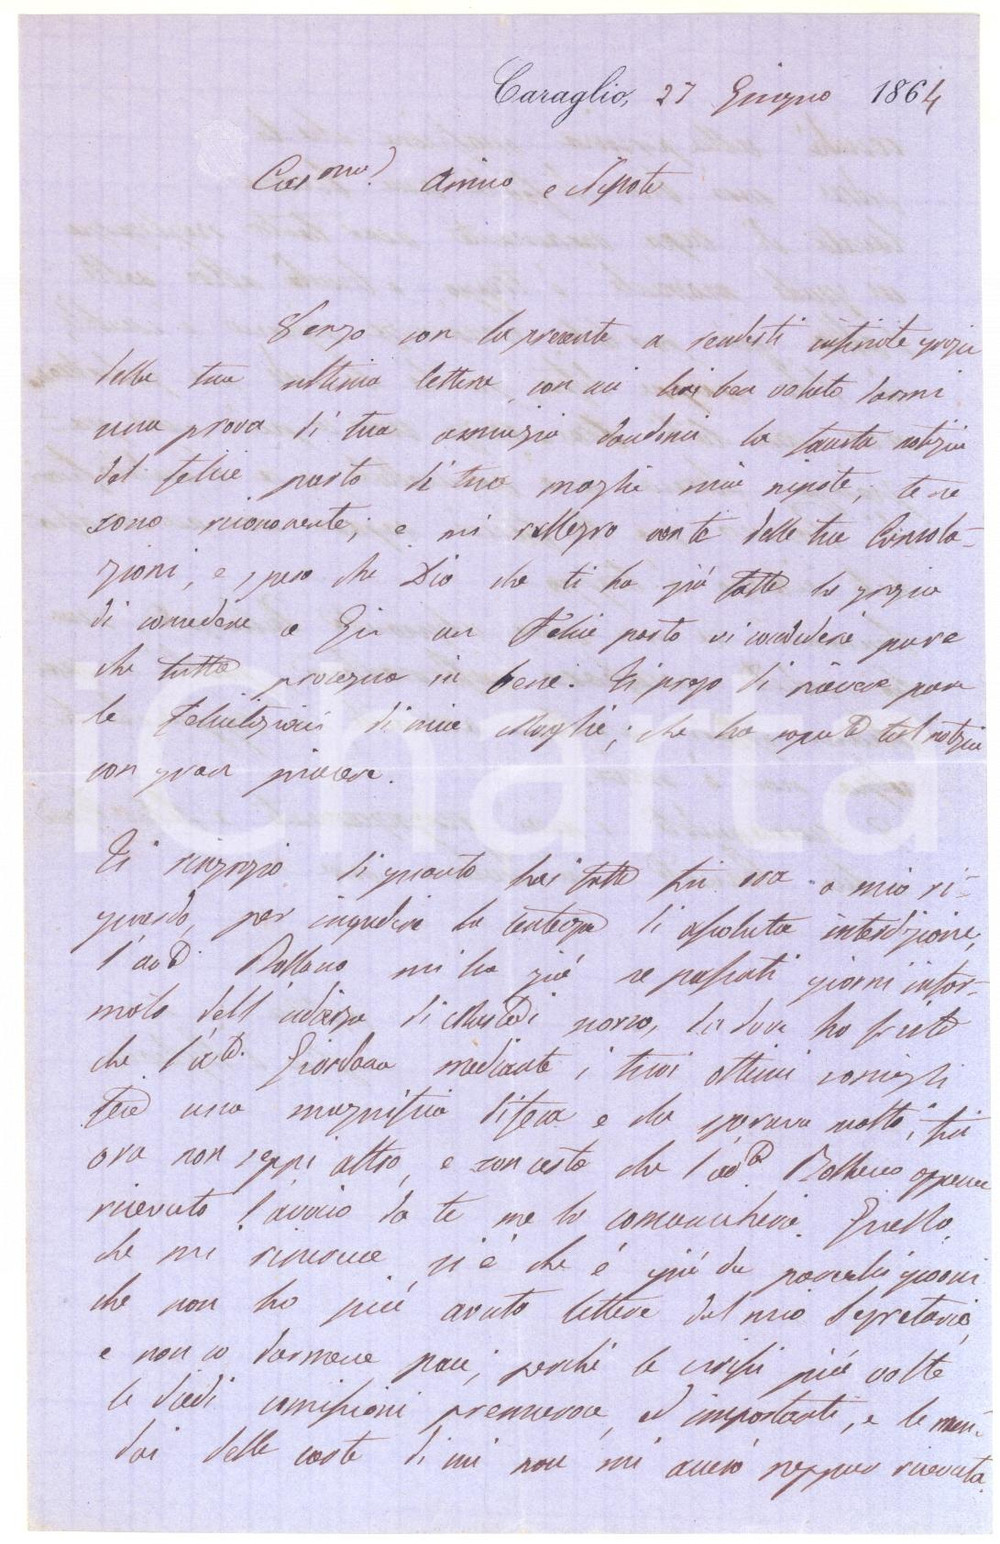 Caraglio, 27 Giugno 1864
Car.mo Amico e Nipote
Vengo con la presente a renderti infinite grazie
della tua ultima lettera con cui hai ben voluto darmi
una prova di tua amicizia dandomi la fausta notizia
del felice parto di tua moglie mia nipote; te ne
sono riconoscente; e mi rallegro con te delle tue Consola-
zioni, e spero che Dio che ti ha già fatto la grazia
di concedere a un felice parto vi concederà pure
che tutto prosegua in bene. Ti prego di ricevere pure
le felicitazioni di mia Moglie; che ha saputo tal notizia
con gran piacere.
Ti ringrazio di quanto hai fatto fin ora a mio ri-
guardo, per impedire la sentenza di assoluta interdizione;
l'avv.to mi ha già ne passati giorni infor-
mato dell'udienza di Martedì scorso, da dove ho
che l'av.to Giordana mediante i tuoi ottimi consigli
fece una magnifica difesa e da sperare molto; fin
ora non seppi altro, e son certo che l'avv.to appena
ricevuto l'avviso da te me lo comunicherà. Quello
che mi rincresce, si è che è già da parecchi giorni
che non ho più avuto lettere dal mio Segretario,
e non so darmene pace; perché le scrissi più volte
le diedi commissioni premurose, ed importanti, e le man-
dai delle carte di cui non mi accusò neppure ricevuta.
iCharta